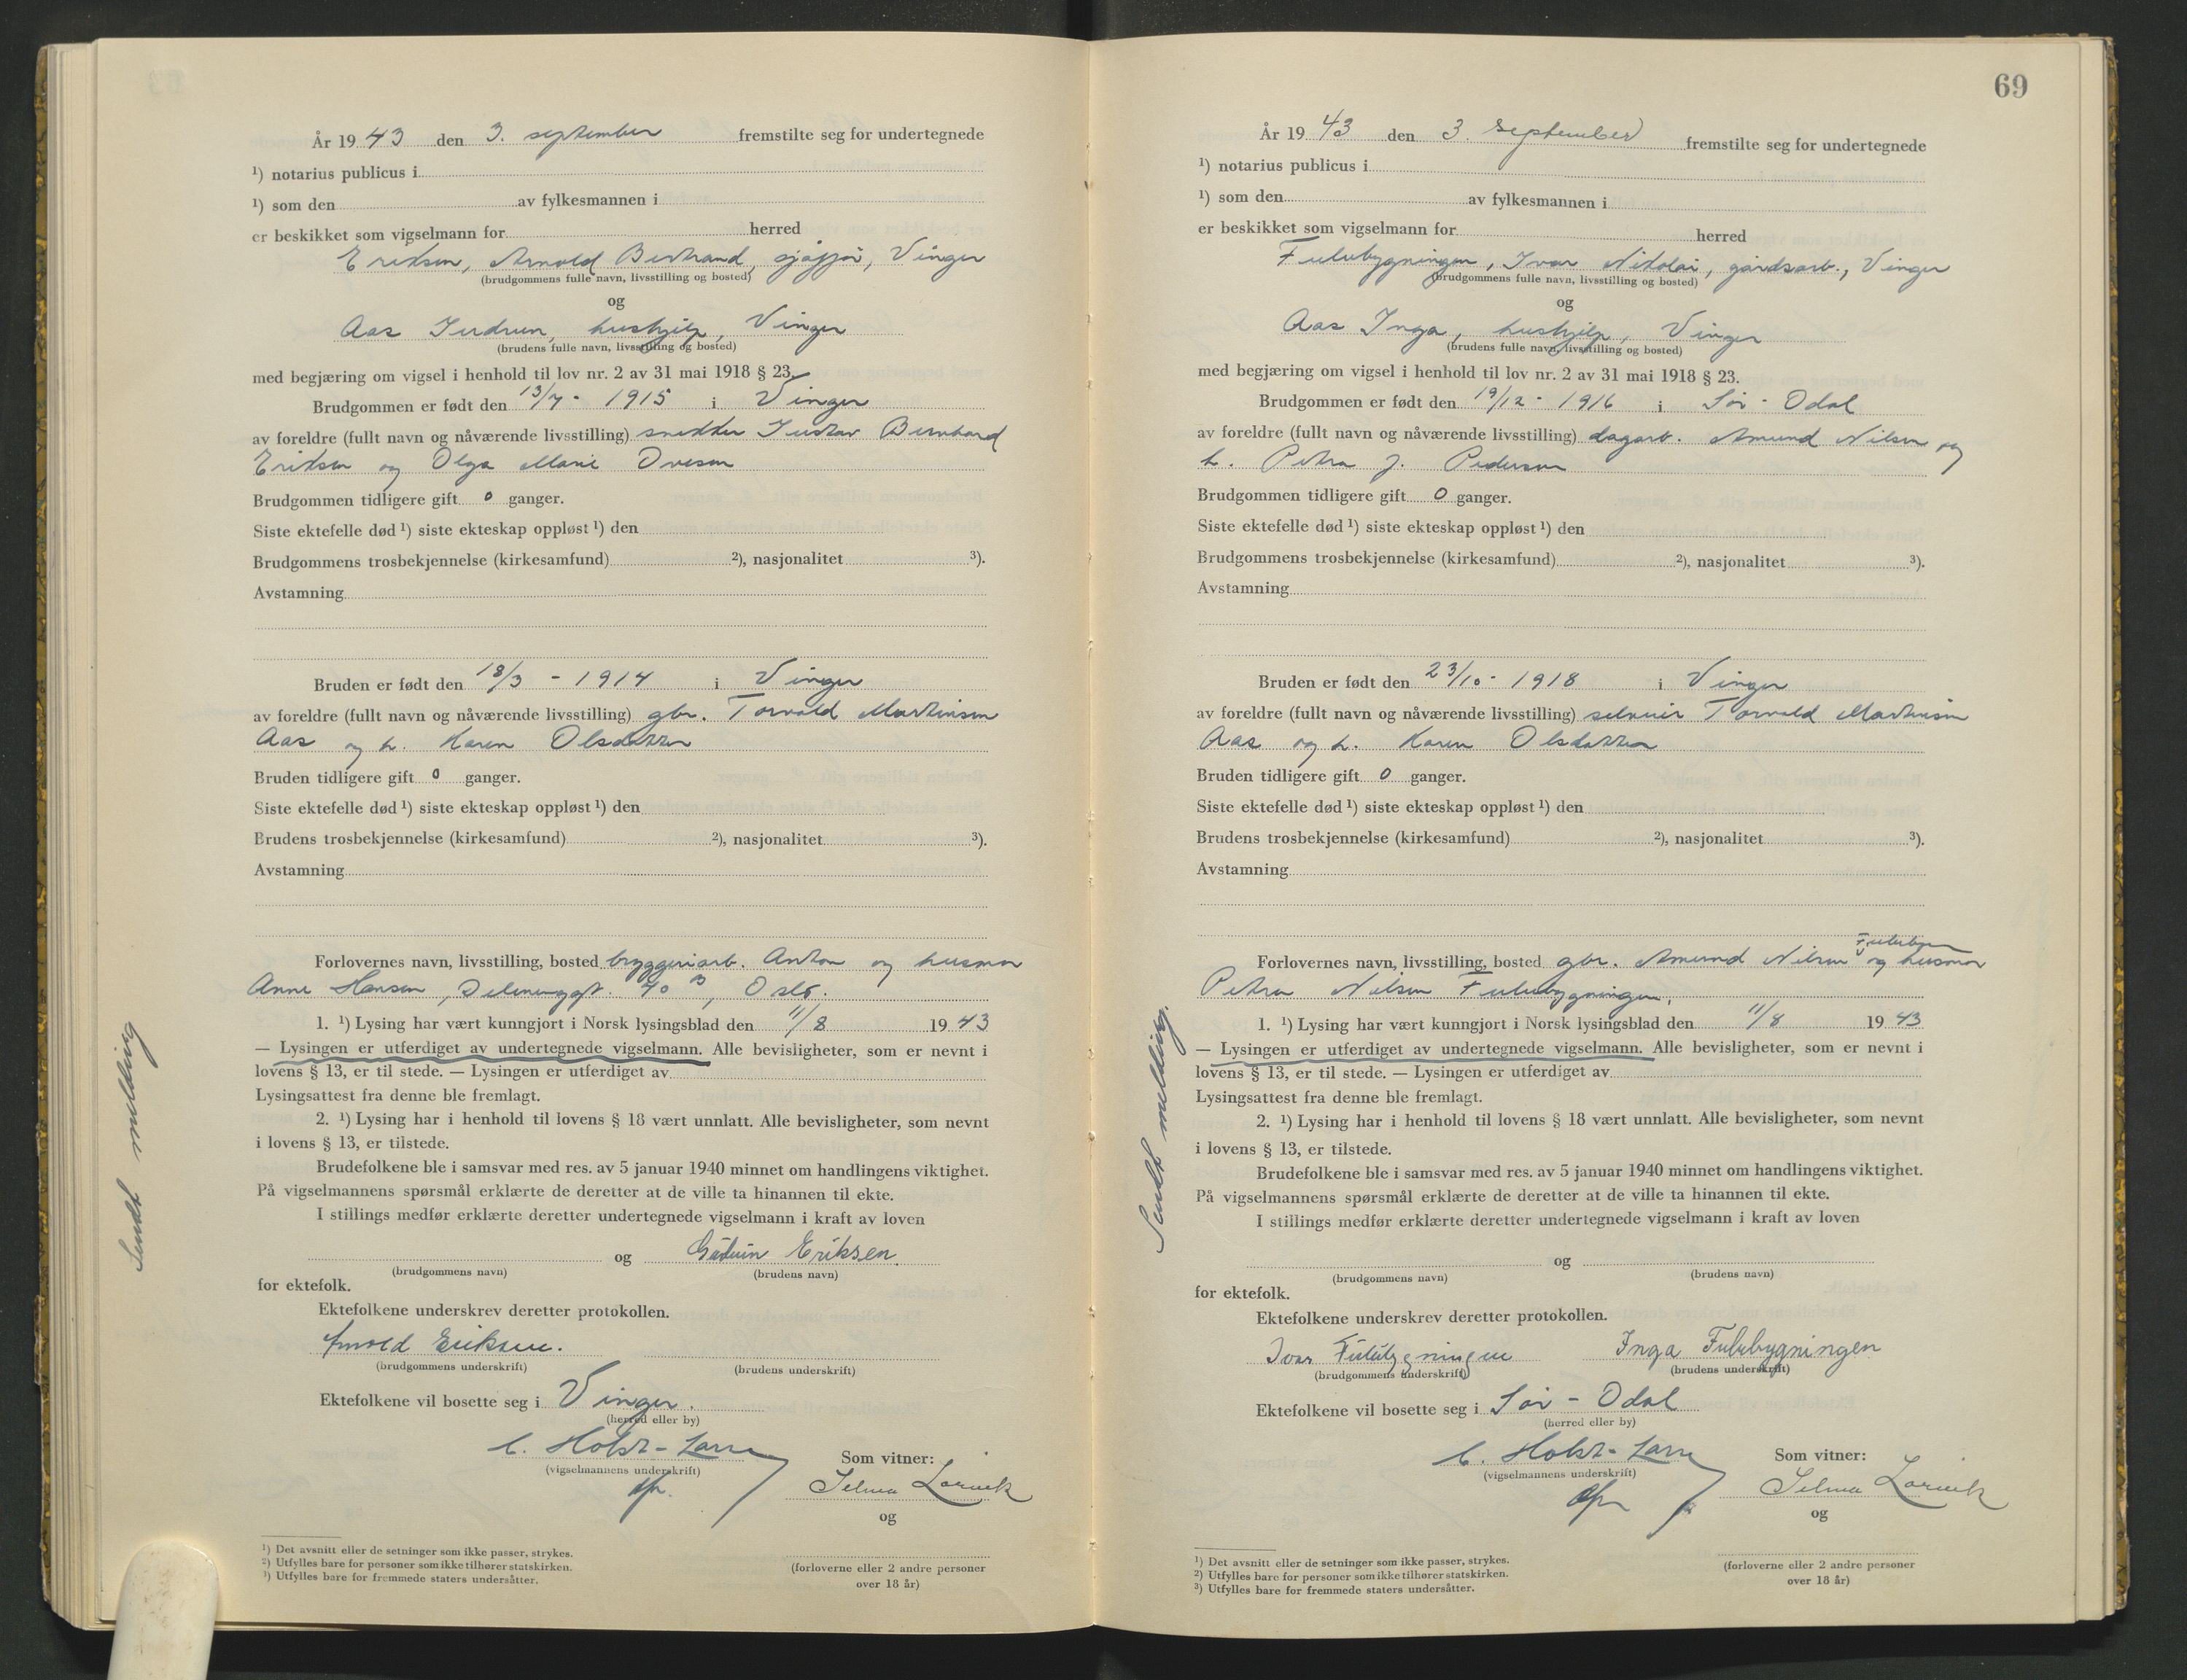 År 19 43 den 3. september fremstilte seg for undertegnede
¹) notarius publicus i
¹) som den av fylkesmannen i
er beskikket som vigselmann for herred
Eriksen, Arnold Bertrand, sjåffør, Vinger
(brudgommens fulle navn, livsstilling og bosted)
og
Aas Gudrun, hushjelp, Vinger
(brudens fulle navn, livsstilling og bosted)
med begjæring om vigsel i henhold til lov nr. 2 av 31 mai 1918 § 23.
Brudgommen er født den 13/7 - 1915 i Vinger
av foreldre (fullt navn og nåværende livsstilling) snekker Gustav Bernhard
Eriksen og Olga Marie Ovesen
Brudgommen tidligere gift 0 ganger.
Siste ektefelle død ¹) siste ekteskap oppløst ¹) den
Brudgommens trosbekjennelse (kirkesamfund) ²), nasjonalitet ³).
Avstamning
Bruden er født den 18/3 - 1914 i Vinger
av foreldre (fullt navn og nåværende livsstilling) gbr. Torvald Martinsen
Aas og h. Karen Olsdatter
Bruden tidligere gift 0 ganger.
Siste ektefelle død ¹) siste ekteskap oppløst ¹) den
Brudens trosbekjennelse (kirkesamfund) ²), nasjonalitet ³).
Avstamning
Forlovernes navn, livsstilling, bosted bryggeriarb. Anton og husmor
Anne Hansen, Oslo.
1. ¹) Lysing har vært kunngjort i Norsk lysingsblad den 11/8 19 43
— Lysingen er utferdiget av undertegnede vigselmann. Alle bevisligheter, som er nevnt i
lovens § 13, er til stede. — Lysingen er utferdiget av
Lysingsattest fra denne ble fremlagt.
2. ¹) Lysing har i henhold til lovens § 18 vært unnlatt. Alle bevisligheter, som nevnt
i lovens § 13, er tilstede.
Brudefolkene ble i samsvar med res. av 5 januar 1940 minnet om handlingens viktighet.
På vigselmannens spørsmål erklærte de deretter at de ville ta hinannen til ekte.
I stillings medfør erklærte deretter undertegnede vigselmann i kraft av loven
og Gudrun Eriksen.
(brudgommens navn) (brudens navn)
for ektefolk.
Ektefolkene underskrev deretter protokollen.
Arnold Eriksen.
(brudgommens underskrift) (brudens underskrift)
Ektefolkene vil bosette seg i Vinger.
(herred eller by)
C. Holst-Larsen
(vigselmannens underskrift)
Som vitner:
Selma Larvik
og
(forloverne eller 2 andre personer
over 18 år)
¹) Det avsnitt eller de setninger som ikke passer, strykes.
²) Utfylles bare for personer som ikke tilhører statskirken.
³) Utfylles bare for fremmede staters undersåtter.
Sendt melding
69
År 19 43 den 3. september fremstilte seg for undertegnede
¹) notarius publicus i
¹) som den av fylkesmannen i
er beskikket som vigselmann for herred
Fulubygningen, Ivar Nikolai, gårdsarb., Vinger
(brudgommens fulle navn, livsstilling og bosted)
og
Aas Inga, hushjelp, Vinger
(brudens fulle navn, livsstilling og bosted)
med begjæring om vigsel i henhold til lov nr. 2 av 31 mai 1918 § 23.
Brudgommen er født den 19/12 - 1916 i Sør-Odal
av foreldre (fullt navn og nåværende livsstilling) dagarb. Amund Nilsen og
h. Petra J. Pedersen
Brudgommen tidligere gift 0 ganger.
Siste ektefelle død ¹) siste ekteskap oppløst ¹) den
Brudgommens trosbekjennelse (kirkesamfund) ²), nasjonalitet ³).
Avstamning
Bruden er født den 23/10 - 1918 i Vinger
av foreldre (fullt navn og nåværende livsstilling) selveier Torvald Martinsen
Aas og h. Karen Olsdatter
Bruden tidligere gift 0 ganger.
Siste ektefelle død ¹) siste ekteskap oppløst ¹) den
Brudens trosbekjennelse (kirkesamfund) ²), nasjonalitet ³).
Avstamning
Forlovernes navn, livsstilling, bosted gbr. Amund Nilsen og husmor
Petra Nilsen Fulubygningen.
1. ¹) Lysing har vært kunngjort i Norsk lysingsblad den 11/8 19 43
— Lysingen er utferdiget av undertegnede vigselmann. Alle bevisligheter, som er nevnt i
lovens § 13, er til stede. — Lysingen er utferdiget av
Lysingsattest fra denne ble fremlagt.
2. ¹) Lysing har i henhold til lovens § 18 vært unnlatt. Alle bevisligheter, som nevnt
i lovens § 13, er tilstede.
Brudefolkene ble i samsvar med res. av 5 januar 1940 minnet om handlingens viktighet.
På vigselmannens spørsmål erklærte de deretter at de ville ta hinannen til ekte.
I stillings medfør erklærte deretter undertegnede vigselmann i kraft av loven
og
(brudgommens navn) (brudens navn)
for ektefolk.
Ektefolkene underskrev deretter protokollen.
Ivar Fulubygningen Inga Fulubygningen
(brudgommens underskrift) (brudens underskrift)
Ektefolkene vil bosette seg i Sør-Odal
(herred eller by)
C. Holst-Larsen
(vigselmannens underskrift)
Som vitner:
Selma Larvik
og
(forloverne eller 2 andre personer
over 18 år)
¹) Det avsnitt eller de setninger som ikke passer, strykes.
²) Utfylles bare for personer som ikke tilhører statskirken.
³) Utfylles bare for fremmede staters undersåtter.
Sendt melding.